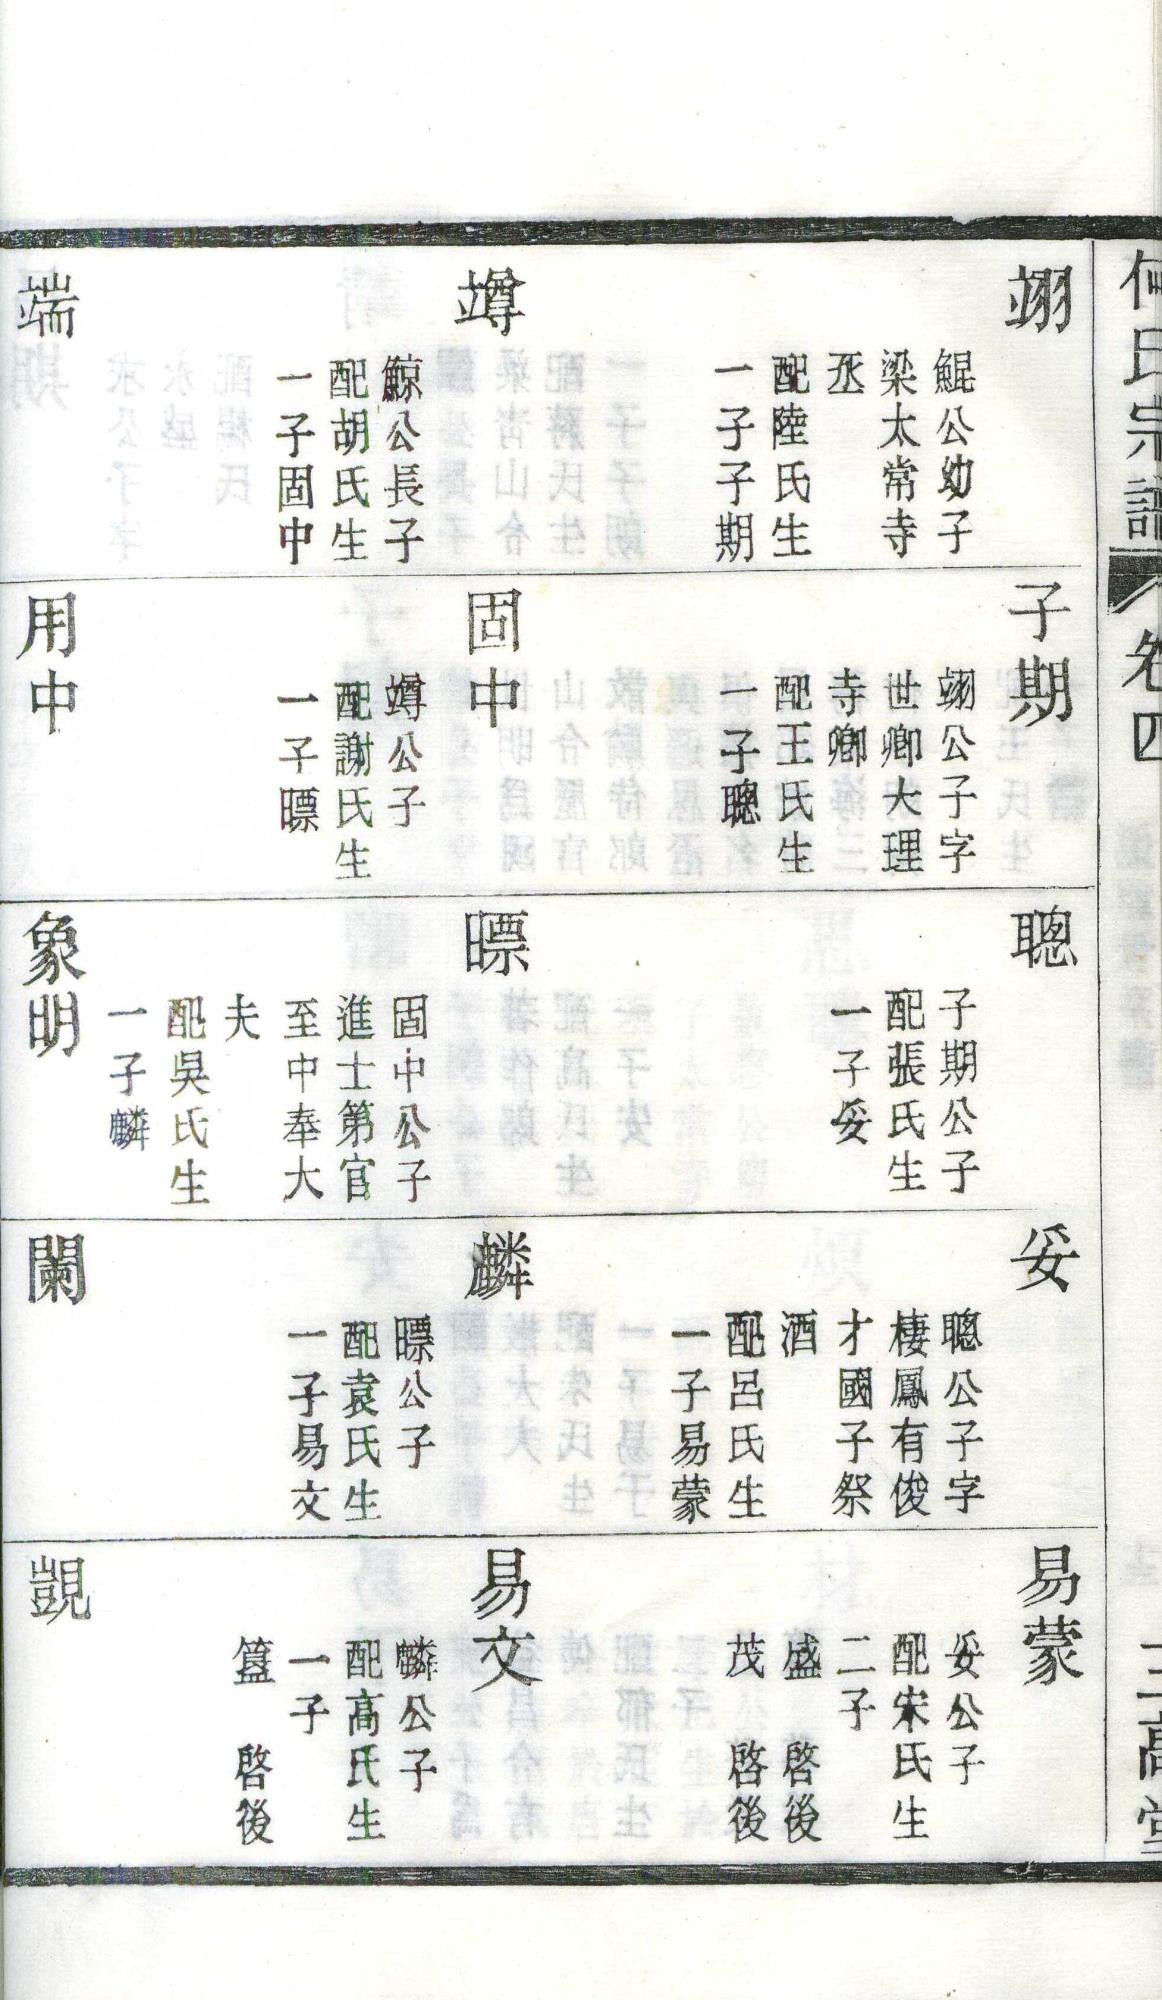 何氏宗譜
卷四
三高堂
翊
鯤公幼子
梁太常寺
丞
配陸氏生
一子子期
竴
鯨公長子
配胡氏生
一子固中
端
子期
翊公子字
世卿大理
寺卿
配王氏生
一子聰
固中
竴公子
配謝氏生
一子暊
用中
聰
子期公子
配張氏生
一子妥
暊
固中公子
進士第官
至中奉大
夫
配吳氏生
一子麟
象明
妥
聰公子字
棲鳳有俊
才國子祭
酒
配呂氏生
一子易蒙
麟
公子
配袁氏生
一子易文
闌
易蒙
妥公子
配宋氏生
二子
盛 啓後
茂 啓後
易文
麟公子
配高氏生
一子
簋 啓後
覬